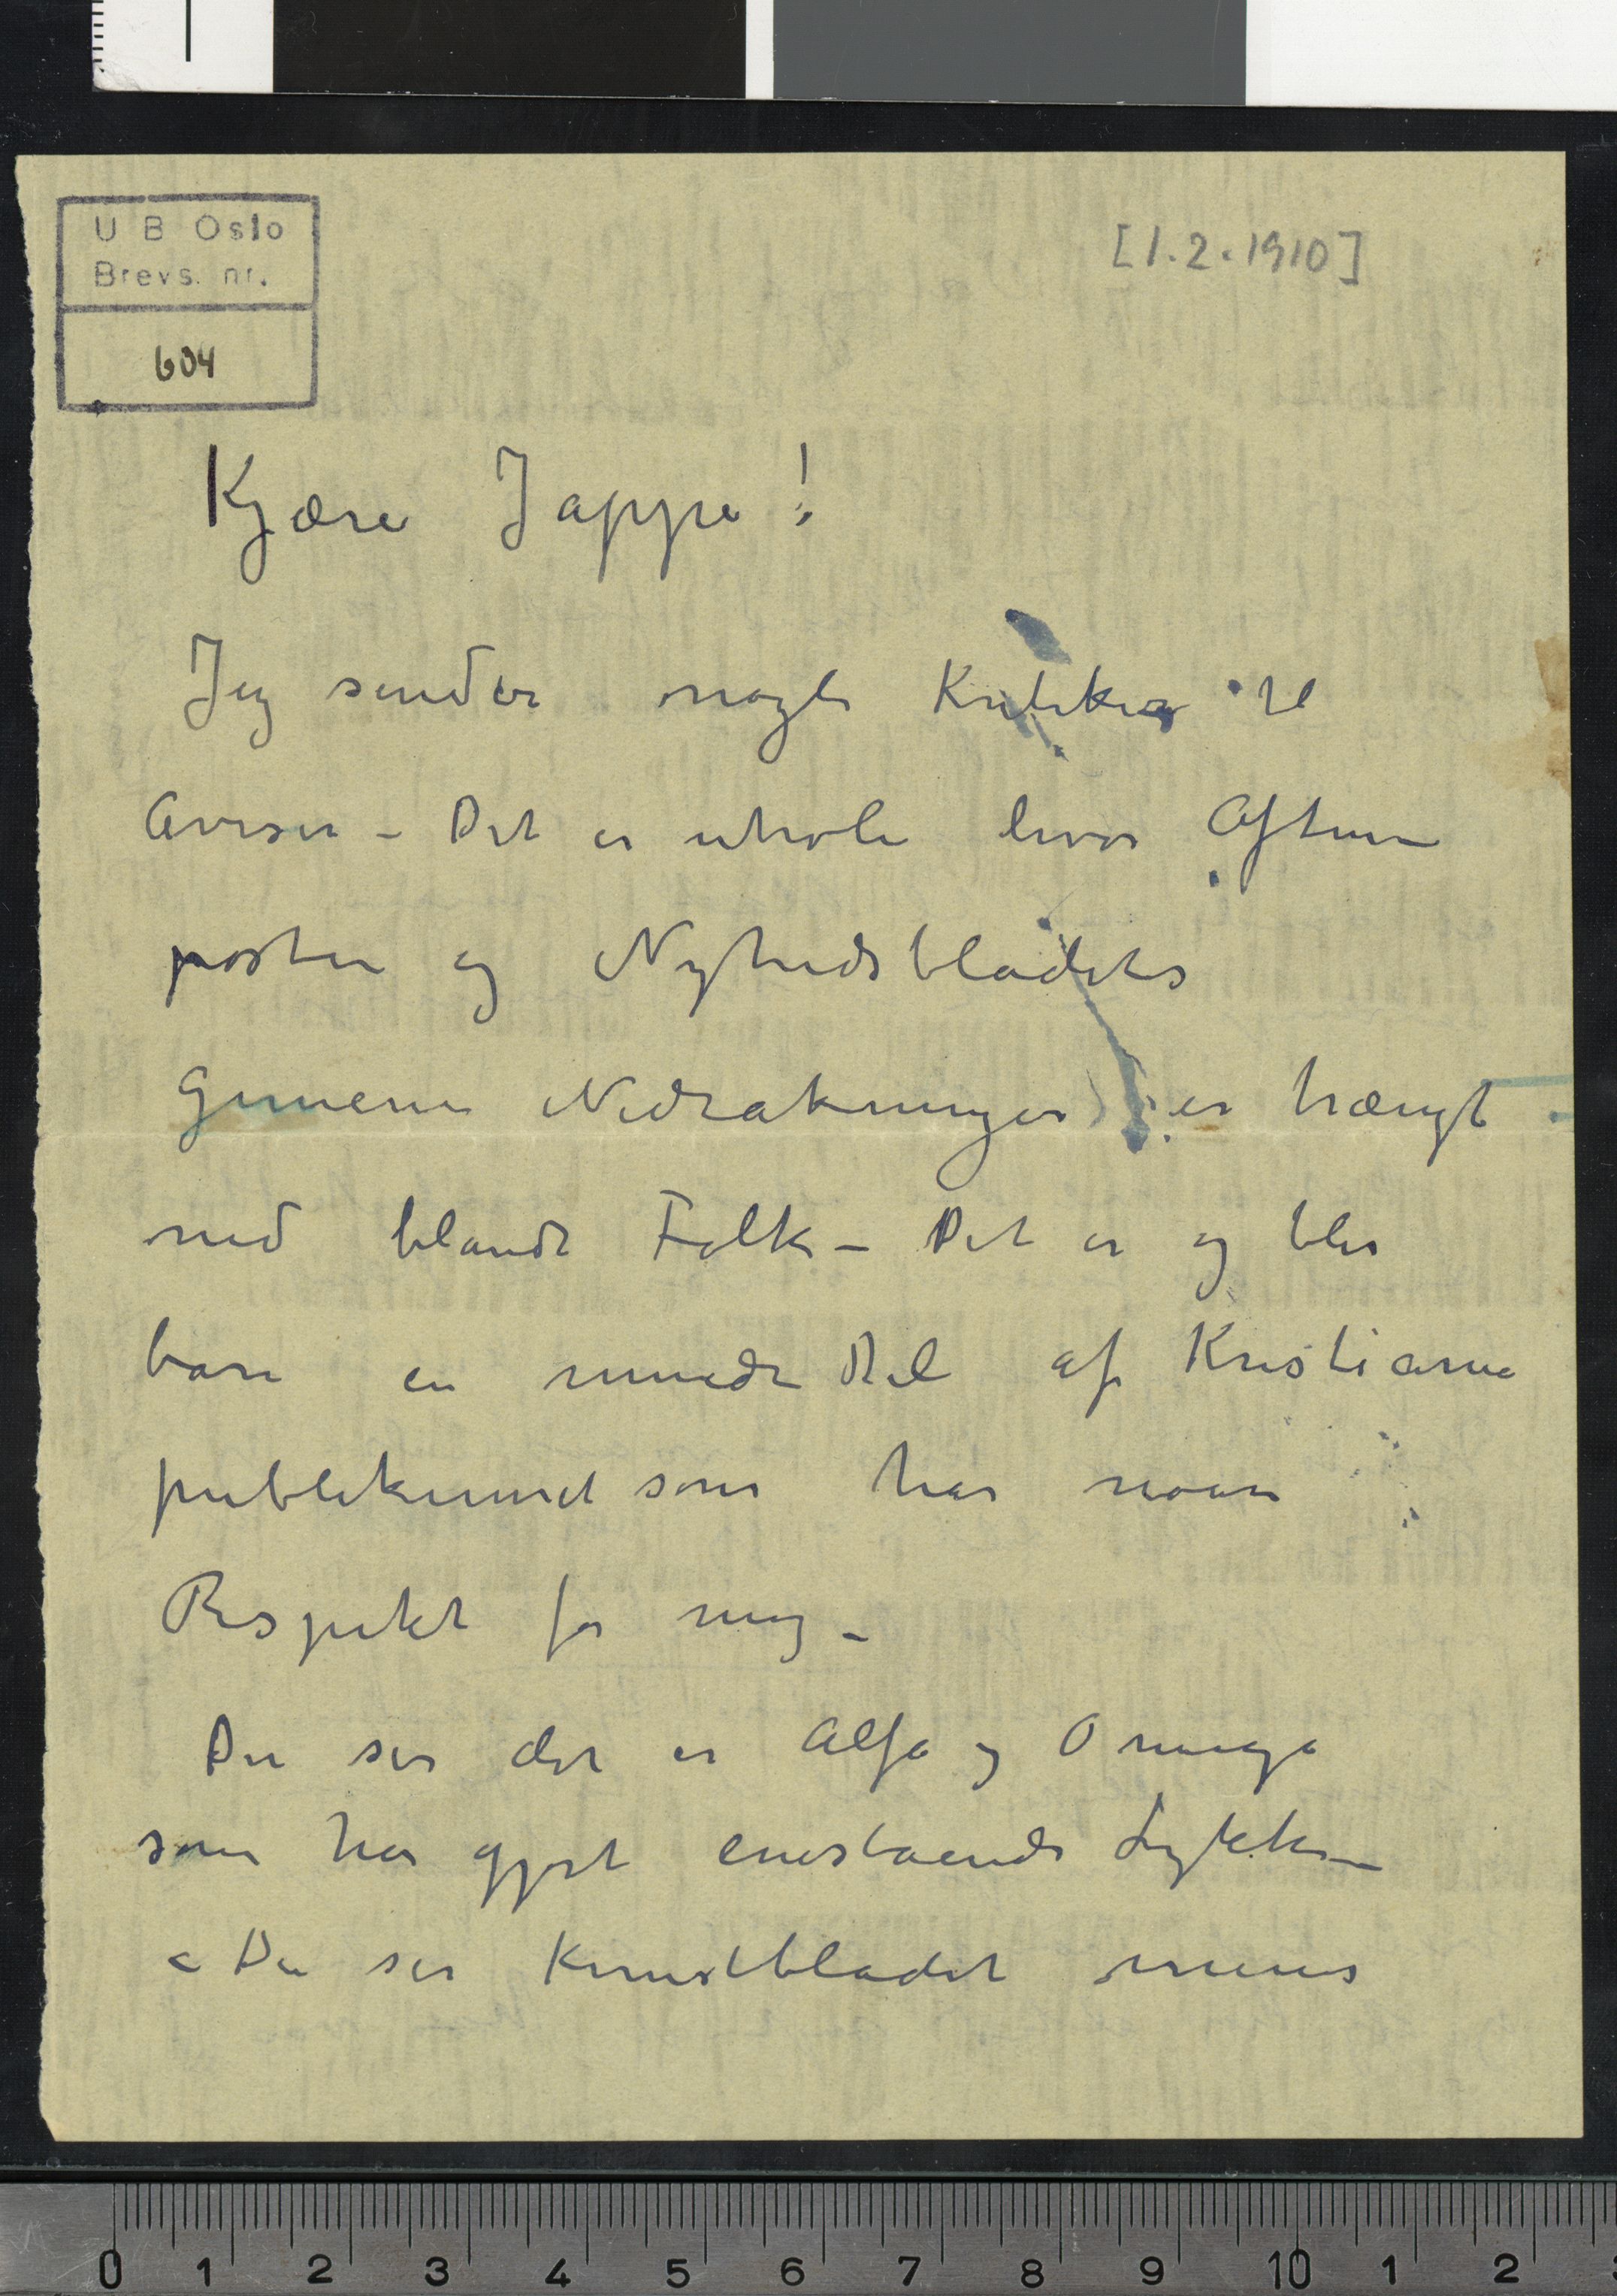 U B Oslo
Brevs. nr.
604
[1.2.1910]
Kjære Jappe!
Jeg sender nogle Kritiker til
Aviser – Det er utrole hvor Aften
posten og Nyhedsbladets
Gemene Nedrakninger er trængt
ned blandt Folk – Det er og blir
bare en mindre Del af Kristiania
publikummet som har noen
Respekt for mig –
Du ser det er Alfa og Omega
som har gjort enestaaende Lykke –
– Du ser Kunstbladet menes
0 1 2 3 4 5 6 7 8 9 10 1 2